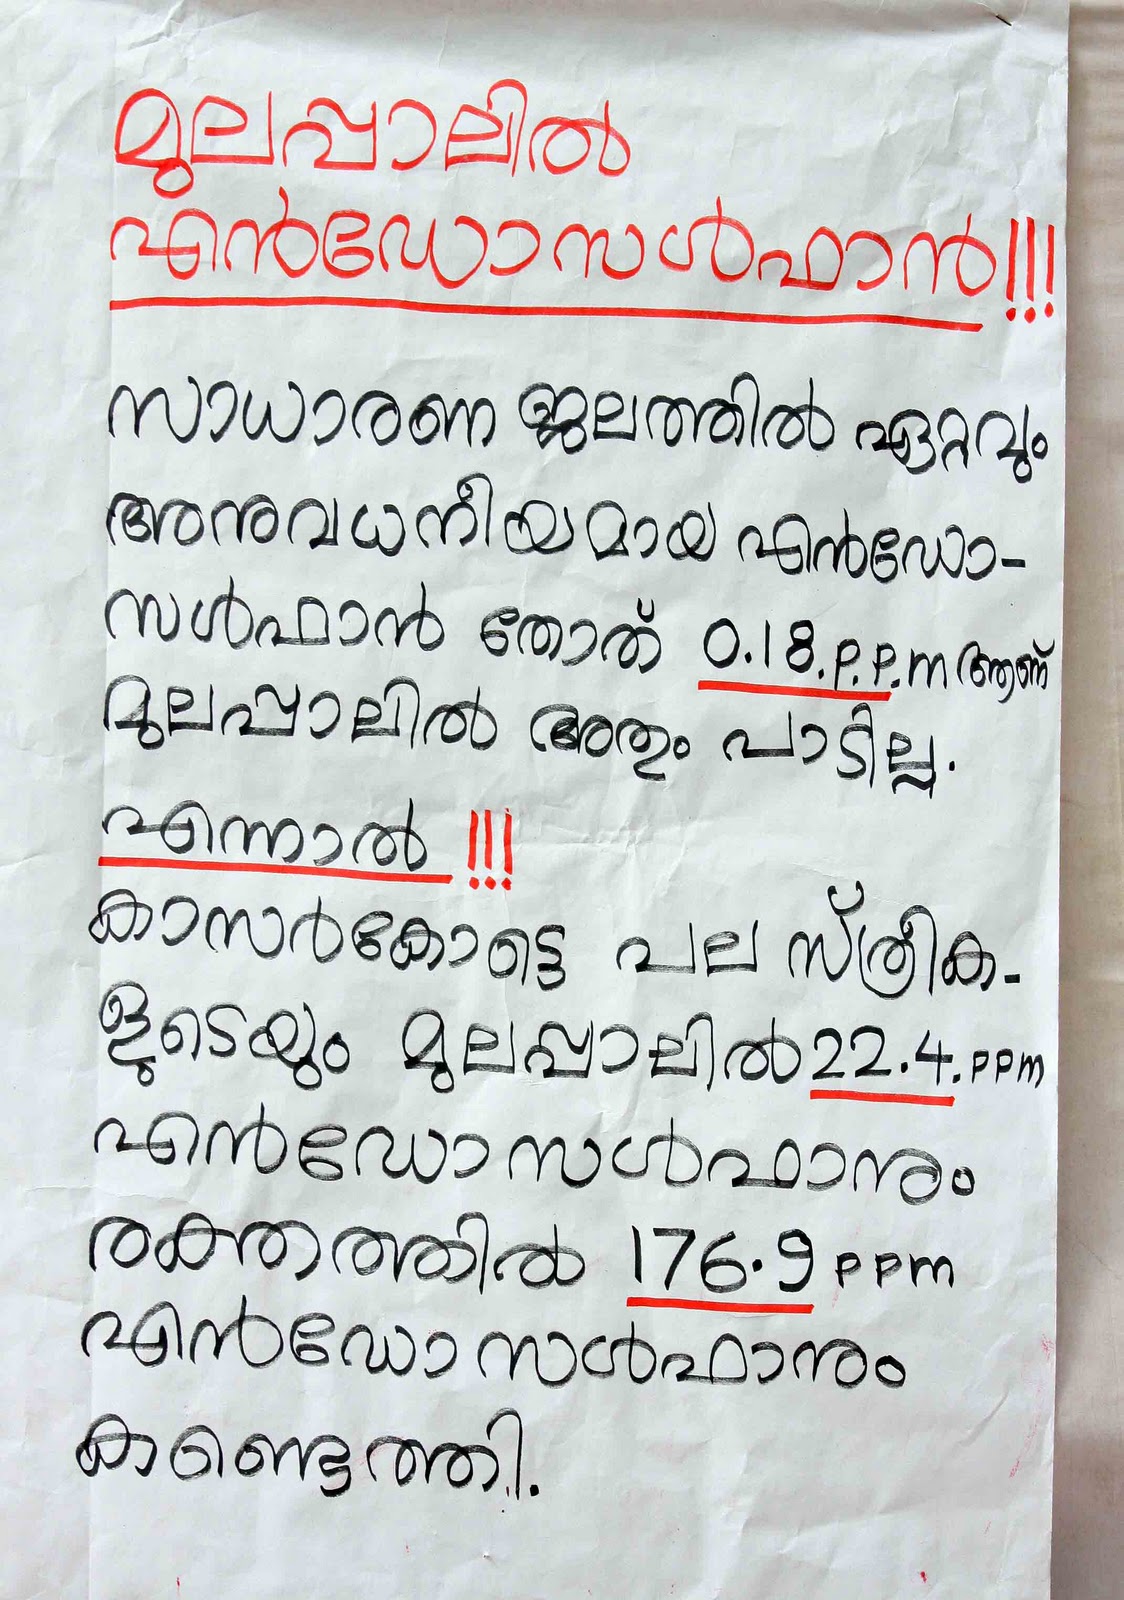 മുലപ്പാലിൽ
എൻഡോസൾഫാൻ!!!
സാധാരണ ജലത്തിൽ ഏറ്റവും
അനുവധനീയമായ എൻഡോ-
സൾഫാൻ തോത് 0.18.P.P.m ആണ്
മുലപ്പാലിൽ അതും പാടില്ല.
എന്നാൽ !!!
കാസർകോട്ടെ പല സ്ത്രീക-
ളുടെയും മുലപ്പാലിൽ 22.4.PPm
എൻഡോസൾഫാനും
രക്തത്തിൽ 176.9 PPm
എൻഡോസൾഫാനും
കണ്ടെത്തി.